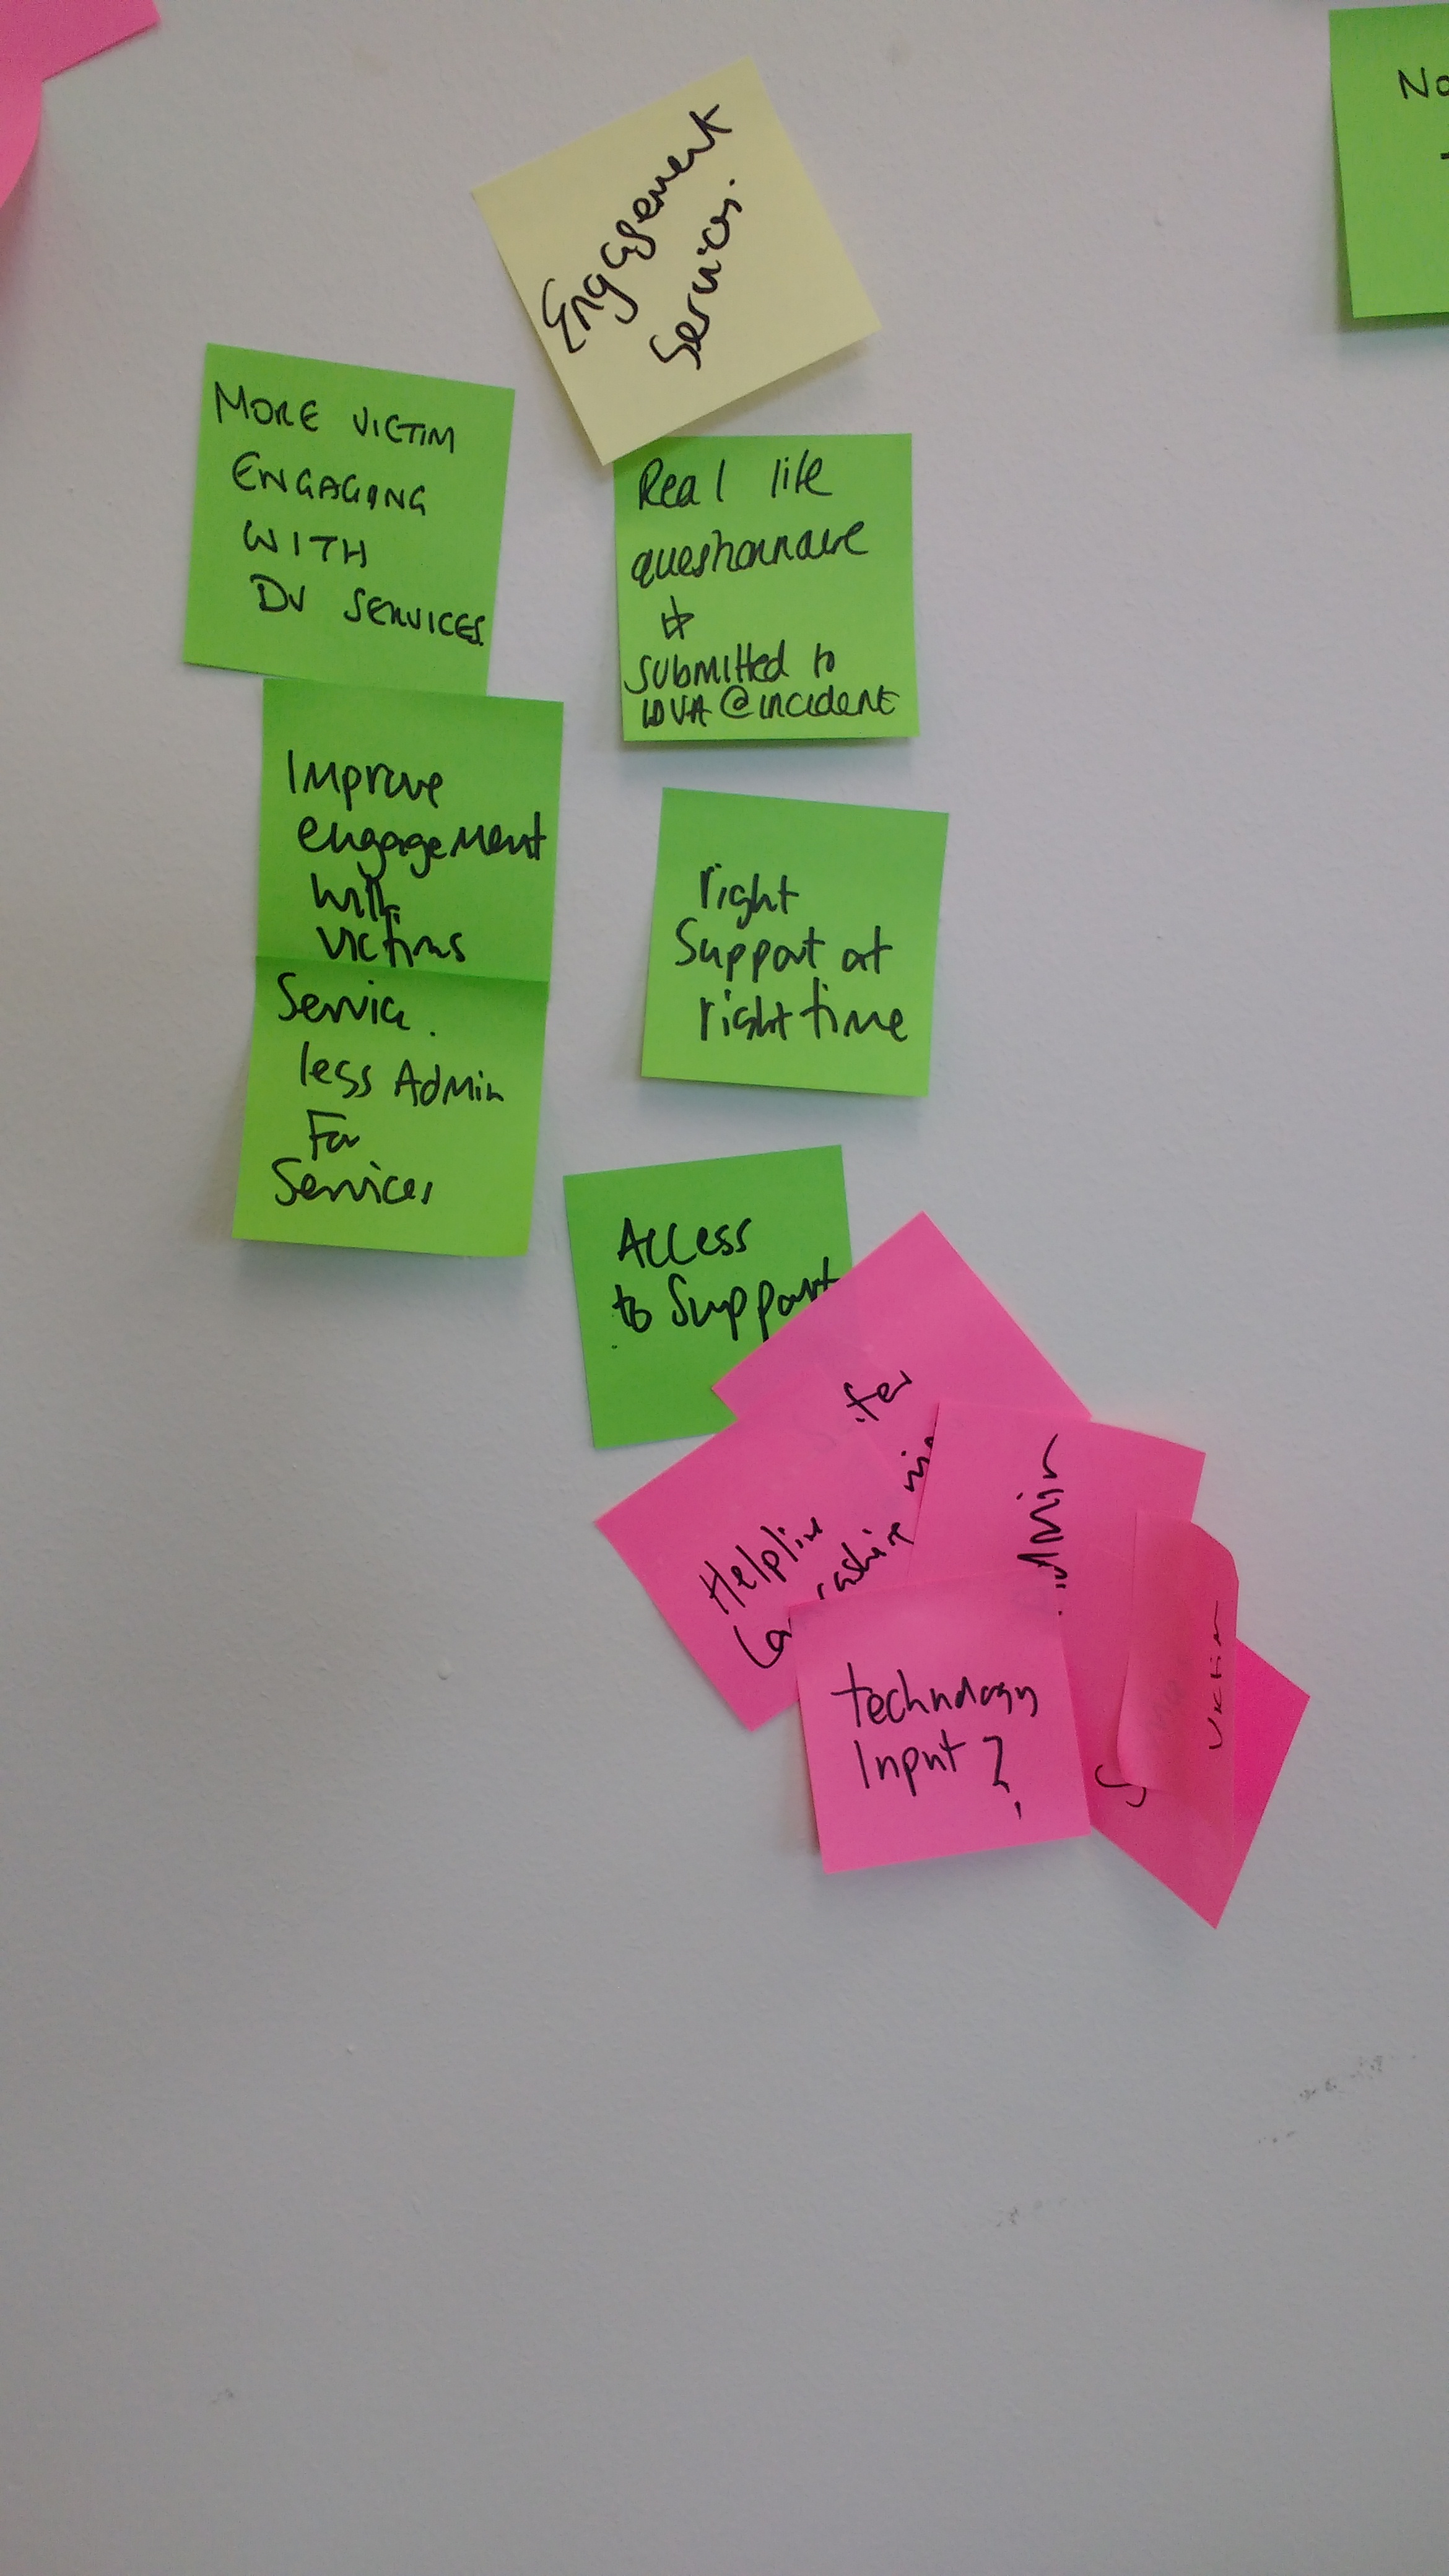 Engagement
Services.
MORE VICTIM
ENGAGING
WITH
DV SERVICES
Real life
questionnaire
&
submitted to
IDVA @ incident
Improve
engagement
with
victims
Service.
less Admin
For
Services
right
Support at
right time
Access
to Support
Helpline
technology
Input?
Victim
No